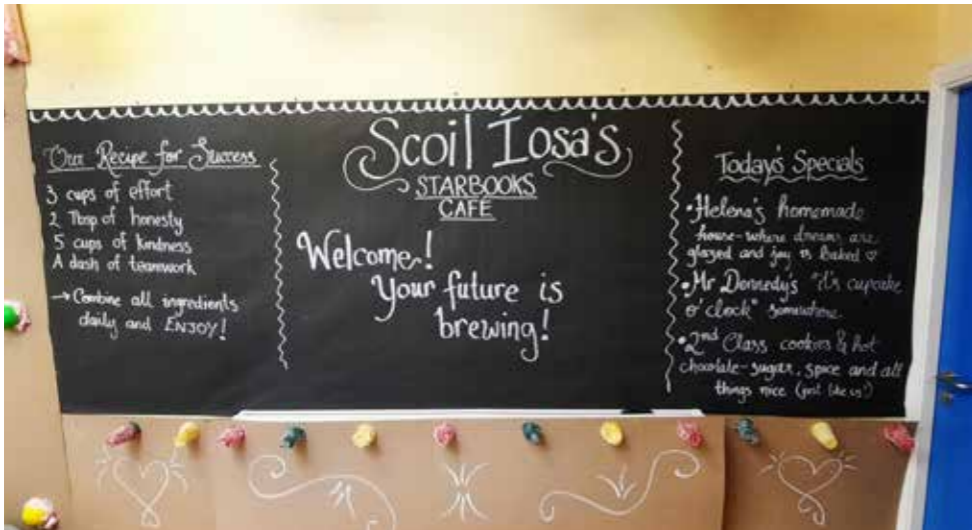 Our Recipe for Success
3 cups of effort
2 Tbsp of honesty
5 cups of kindness
A dash of teamwork
→ Combine all ingredients
daily and ENJOY!
Scoil Íosa's
STARBOOKS
CAFÉ
Welcome!
Your future is
brewing!
Today's Specials
•Helena's homemade
house-where dreams are
glazed and joy is baked ♡
•Mr Donnedys "it's cupcake
o'clock" somewhere
•2nd Class cookies & hot
chocolate-sugar, spice and all
things nice (just like us!)